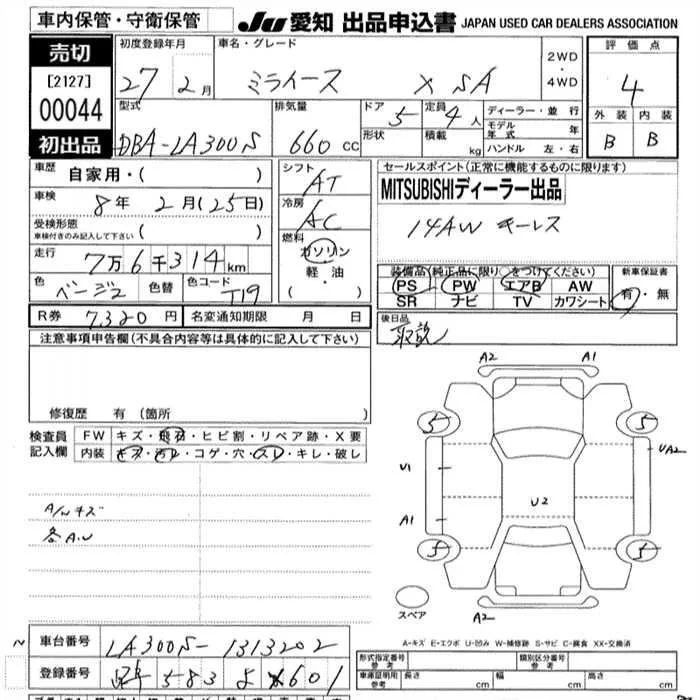 車内保管・守衛保管
JU 愛知 出品申込書 JAPAN USED CAR DEALERS ASSOCIATION
売切
[2127]
00044
初出品
初度登録年月 車名・グレード
27 2月 ミライース X SA
2WD
・
4WD
評価点
4
外装 内装
B B
型式 排気量 ドア 定員
DBA-LA300S 660 CC 5 4人
形状 積載 kg
ディーラー・並行
モデル年式 年
ハンドル 左・右
車歴 自家用・( )
車検 8年 2月(25日)
受検形態
車検付きのみ記入して下さい ( )
走行 7万6千314km
色 ベージュ 色替 色コード T19
シフト AT
冷房 AC
燃料
ガソリン
軽油
・( )
セールスポイント(正常に機能するものに限ります)
MITSUBISHIディーラー出品
14AW キーレス
装備品(純正品に限り○をつけてください)
PS PW エアB AW
SR ナビ TV カワシート
新車保証書
有・無
R券 7,320円 名変通知期限 月 日
後日品
取説
注意事項申告欄(不具合内容等は具体的に記入して下さい)
修復歴 有(箇所 )
検査員記入欄
FW キズ・飛石・ヒビ割・リペア跡・X要
内装 キズ・汚レ・コゲ・穴・スレ・キレ・破レ
A/Wキズ
各A.U
A2 A1
5 5
UA2
U1
U2
A1
5 5
スペア
A2
A-キズ E-エクボ U-凹み W-補修跡 S-サビ C-腐食 XX-交換済
車台番号 LA300S-1313202
登録番号 583 601
形式指定番号
参考
類別区分番号
参考
車庫証明用
参考
長さ cm 幅 cm 高さ cm